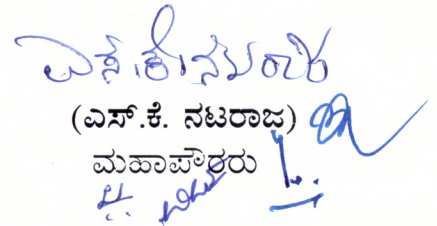 ಎಸ್.ಕೆ.ನಟರಾಜ
(ಎಸ್.ಕೆ. ನಟರಾಜ)
ಮಹಾಪೌರರು